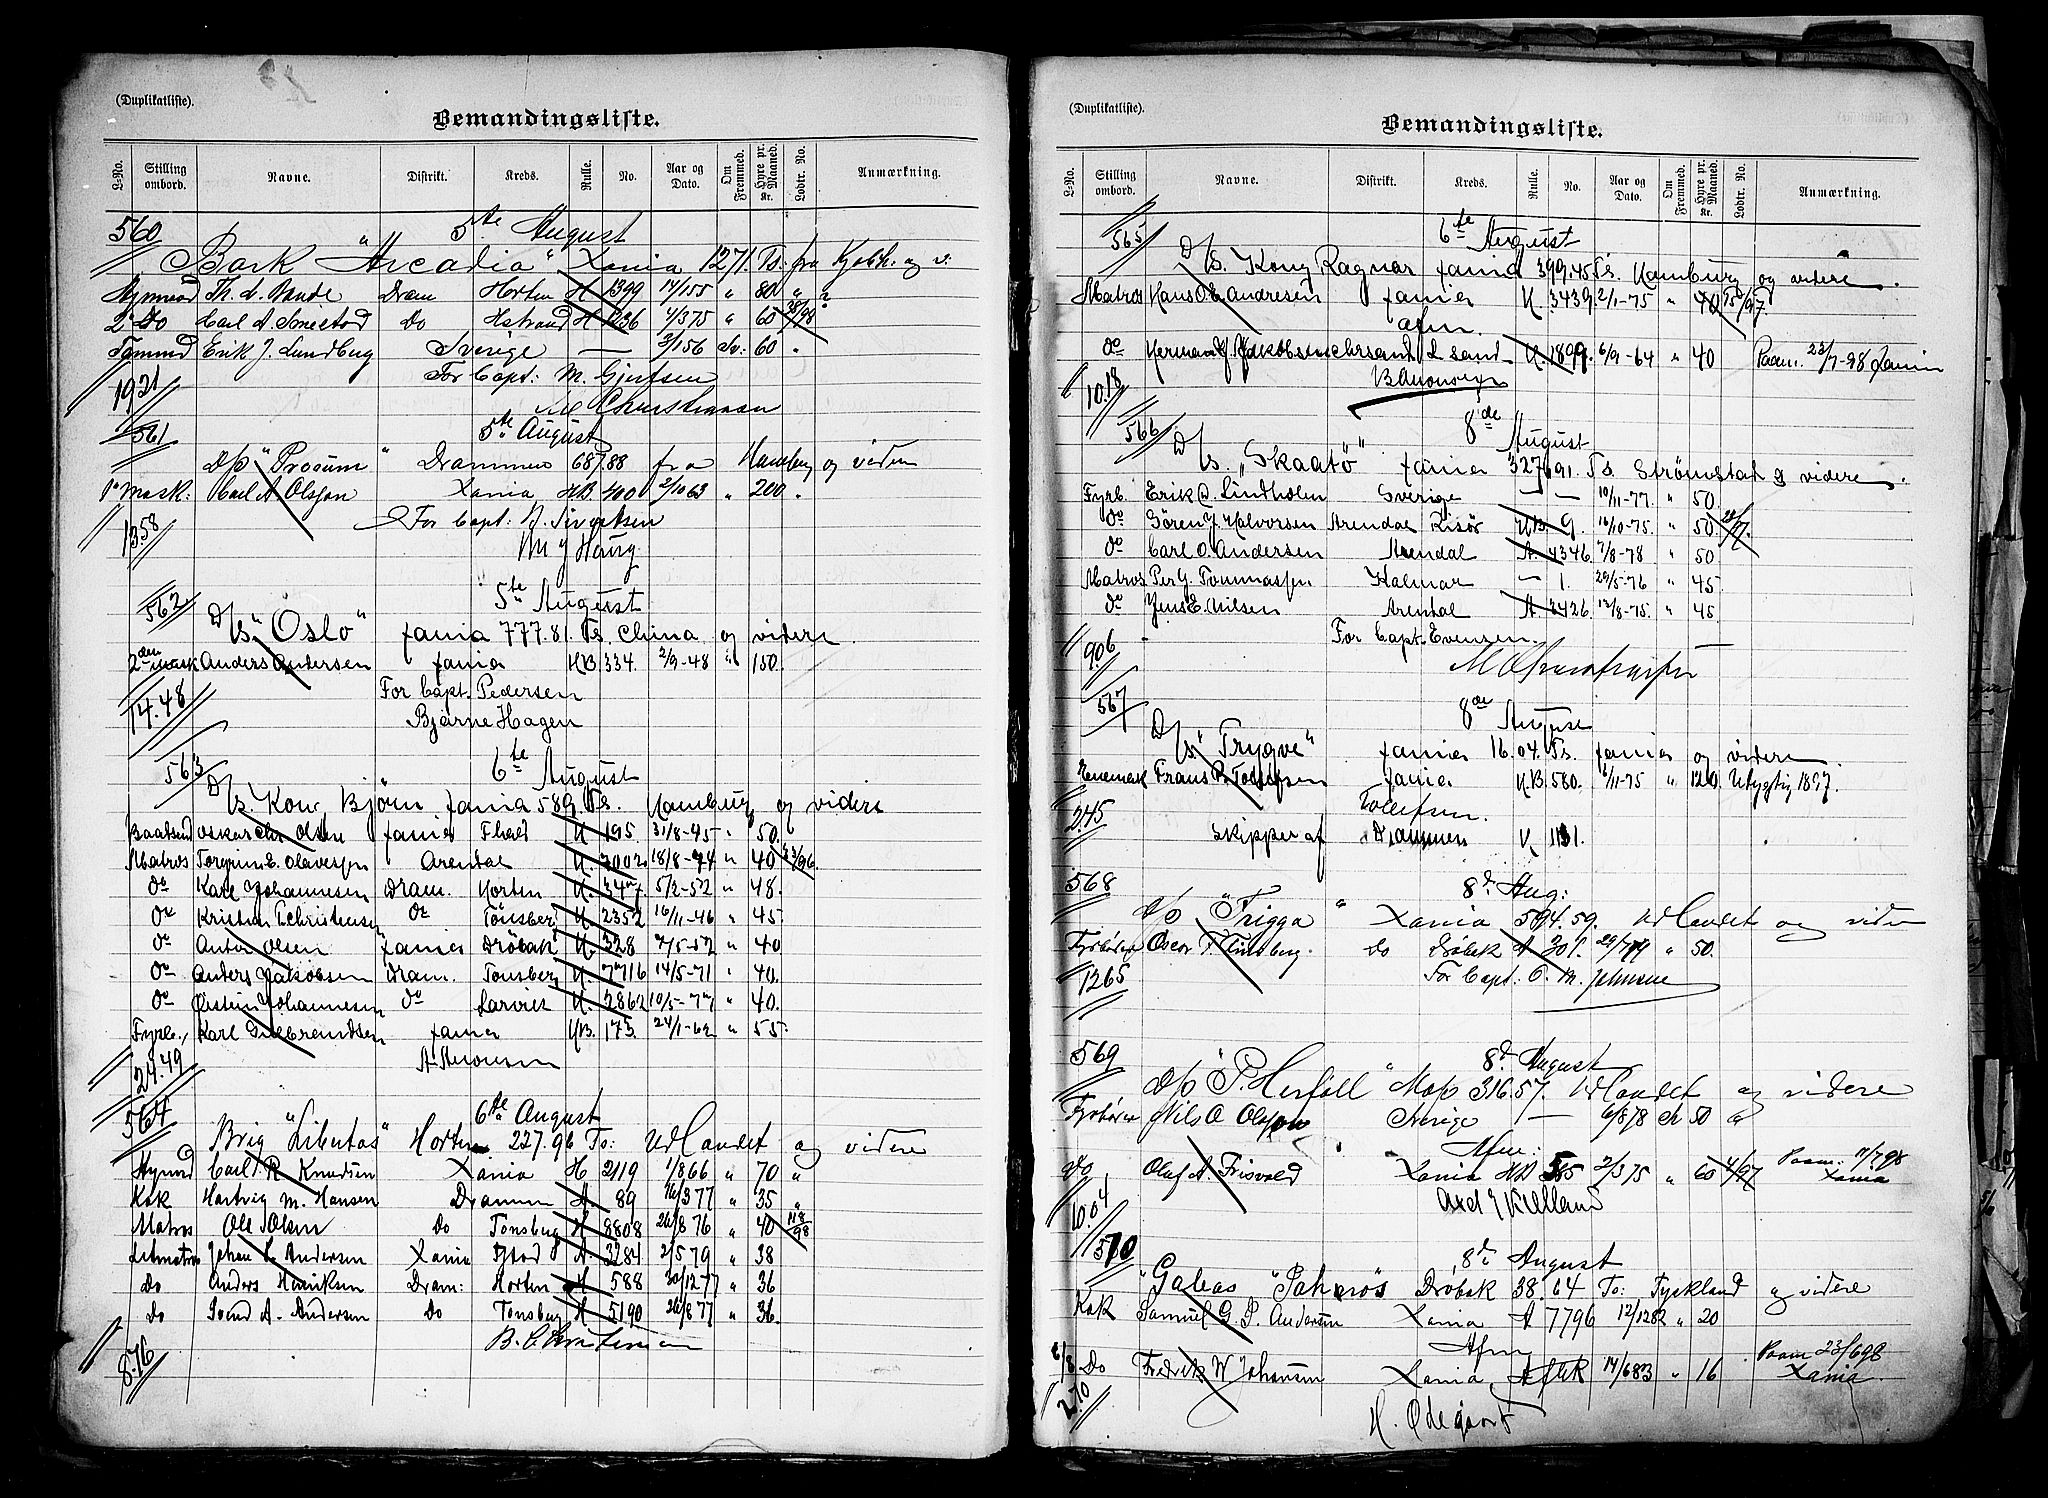 (Duplikatliste).
Bemandingsliste.
L-No. Stilling ombord. Navne. Distrikt. Kreds. Rulle. No. Aar og Dato. Om Fremmed. Hyre pr. Maaned. Kr. Lodtr. No. Anmærkning.
560 5te August
Bark "Arcadia" Xania 1271 Ts. fra Kjøbh. og v:
Th. A. Dram Horten H 1399 14/1 55 " 80 "
2 Do Carl A. Do Hstrand H 1236 4/3 75 " 60 28/98
Erik J. Lundberg Sverige — 3/1 56 Sv: 60 "
For Capt: M. Gjertsen
Christiansen
1921
561 5te August
D/S "Prosum" Drammen 687.88 fra Hamburg og videre
1e Mask: Carl A. Olsson Xania HB. 400 2/10 63 " 200 "
For Capt: N. Sivertsen
M J Haug
13.58
562 5te August
D/S "Oslo" Xania 777.81 Ts. China og videre
2den Mask Anders Andersen Xania HB 334. 2/9-48 " 150.
For Capt. Pedersen
Bjarne Hagen
14.48
563 6te August
D/S Kong Bjørn Xania 589 Ts. Hamburg og videre
Baatsmd Oskar Chr. Olsen Xania H. 195. 31/8-45 " 50.
Matros Torgrim E. Olavesen Arendal H. 3002 18/8-74 " 40
do Karl Johannesen Dram. Horten H. 5/2-52 " 48.
do Kristian Christensen do Tönsberg H 2352 16/11-46 " 45
do Anton Olsen Xania Dröbak H. 328 7/5-52 " 40
do Anders Jakobsen Dram. Tönsberg H. 7716 14/5-71 " 40.
do Øistein Johannesen do Larvik H. 2862 10/5-77 " 40.
Fyrb. Karl Gulbrandsen Xania HB. 173. 24/1-62 " 55
24.49
564 6te August
Brig "Libertas" Horten 227.96 To: Udlandet og videre
Stymd Carl R Knudsen Xania H 2119 1/8 66 " 70 "
Kok Hartvig M. Hansen Drammen A. 89 16/3 77 " 35
Matros Ole Olsen Do Tønsberg H 8808 26/8 76 " 40 118/98
Letmatros Johan L. Andersen Xania A. 3284 2/5 79 " 38
Do Anders Henriksen Dram: Horten H 588 30/12 77 " 36
Do Svend A. Andersen Do Tønsberg H 5190 26/8 77 " 36
B. Christensen
8.76
(Duplikatliste).
Bemandingsliste.
L-No. Stilling ombord. Navne. Distrikt. Kreds. Rulle. No. Aar og Dato. Om Fremmed. Hyre pr. Maaned. Kr. Lodtr. No. Anmærkning.
565 6te August
D/S. Kong Ragnar Xania 399.45 Ts. Hamburg og videre.
Matros Hans O. E. Andresen Xania H. 3439. 2/1-75 " 40
Afm.
do Herman J. Jakobsen Chrsand L sand H. 1899. 6/9-64 " 40 Paam. 23/7-98 Xania
10.18
566 8de August
D/S. "Skaatö" Xania 327.91. Ts. Strömstad og videre.
Fyrb. Erik A. Lindholm Sverige — — 10/11-77. " 50.
do Sören J. Halvorsen Arendal Risör HB 9. 16/10-75. " 50
do Carl O. Andersen Arendal A. 4346. 7/8-78 " 50
Matros Per G. Tommassen Kalmar — 1. 29/5-76 " 45.
do Jens E. Nilsen Arendal A. 3426. 12/8-75. " 45
For Capt. Evensen.
9.06
567 8de August
D/S. "Trygve" Xania 16.04. Ts. Xania og videre.
Enemask Frans R. Tollefsen Xania H.B. 580. 6/11-75 " 120. Udygtig 1897.
Tollefsen.
2.45 Skipper af Drammen K 1131.
568 8d. Aug:
D/S "Frigga" Xania 594.59. Udlandet og videre
Fyrbøder Oscar F. Do Drøbak A 201. " 50.
For Capt: O. M. Johnsen
1265
569 8d. August
D/S "P. Herföll" Moss 316.57. Udlandet og videre
Fyrbøder Nils O Olsson Sverige — 6/8 78 Sv 50 "
Afm:
do Oluf A. Frisvold Xania HB 565 2/3 75 " 60 4/97 Paam: 11/7 98 Xania
Axel Kielland
10.04
570 8d. August
"Galeas" Drøbak 38.64 To: Tyskland og videre
Kok Samuel G. P. Andersen Xania A 7796 12/12 82 " 20
Afm
8/8 Do Fredrik W. Johansen Xania 14/6 83 " 16 Paam 23/6 98 Xania
2.70
H. Ødegaard